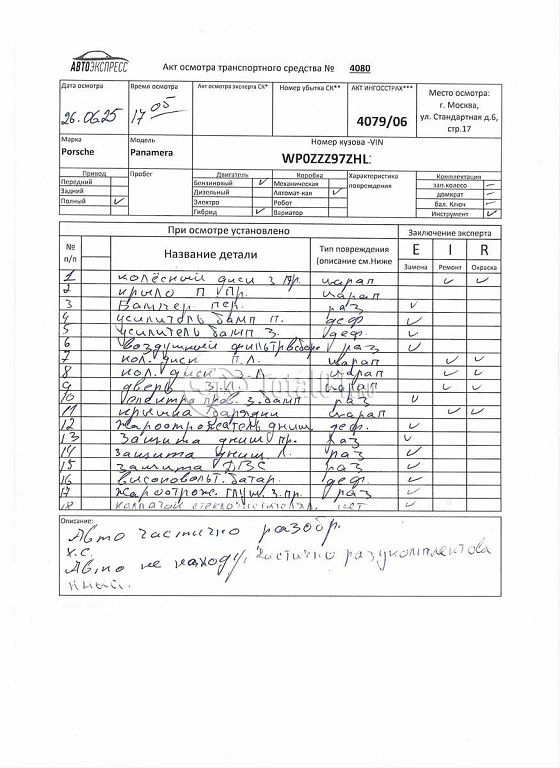 АВТОЭКСПРЕСС
Акт осмотра транспортного средства № 4080
Дата осмотра
26.06.25
Время осмотра
17 05
Акт осмотра эксперта СК*
Номер убытка СК**
АКТ ИНГОССТРАХ***
4079/06
Место осмотра:
г. Москва,
ул. Стандартная д.6,
стр.17
Марка
Porsche
Модель
Panamera
Номер кузова -VIN
WP0ZZZ97ZHL
Привод
Передний
Задний
Полный ✓
Пробег
Двигатель
Бензиновый ✓
Дизельный
Электро
Гибрид ✓
Коробка
Механическая
Автомат-кая ✓
Робот
Вариатор
Характеристика
повреждения
Комплектация
зап.колесо –
домкрат –
бал. Ключ –
Инструмент ✓
При осмотре установлено
Заключение эксперта
№
п/п
Название детали
Тип повреждения
(описание см.Ниже
E I R
Замена Ремонт Окраска
1 колёсный диск з пр. царап ✓ ✓
2 крыло П пр. царап
3 Бампер пер. раз ✓
4 усилитель бамп п. деф ✓
5 усилитель бамп з. деф. ✓
6 воздушный раз ✓
7 кол. диск П.Л. царап ✓ ✓
8 кол. диск З.Л. царап ✓ ✓
9 дверь З.Л. царап ✓ ✓
10 электро пров. з. бамп раз ✓
11 крышка зарядки царап ✓ ✓
12 жароотражатель днищ. деф. ✓
13 Защита днищ пр. раз ✓
14 защита днищ л. раз ✓
15 защита ДВС раз ✓
16 высоковольт. батар. деф. ✓
17 жароотраж. глуш. з. пр. раз ✓
18 нет ✓
Описание:
Авто частично разобр.
х.с.
Авто не на ходу, частично разукомплектова
нный.